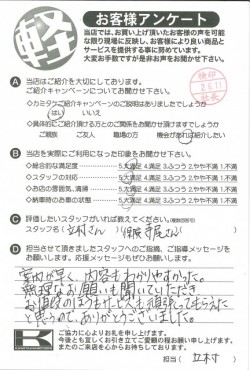 軽
お客様アンケート
当店では、お買い上げ頂いたお客様の声を可能
な限り現場に反映し、お客様により良い商品と
サービスを提供する事に努めています。
大変お手数ですが是非お声をお聞かせ下さい。
検印
2.6.11
社長
A 当店はご紹介を大切にしております。
ご紹介キャンペーンについてお聞かせ下さい。
◇カミタケご紹介キャンペーンのご説明はありましたでしょうか
はい いいえ
◇具体的にご紹介頂ける方とのご関係をお聞かせ頂けますでしょうか
ご親戚 ご友人 職場の方 機会があれば紹介したい
B 当店を実際にご利用になった印象をお聞かせ下さい。
◇総合的な満足度 5.大満足 4.満足 3.ふつう 2.やや不満 1.不満
◇スタッフの対応 5.大満足 4.満足 3.ふつう 2.やや不満 1.不満
◇お店の雰囲気、清掃 5.大満足 4.満足 3.ふつう 2.やや不満 1.不満
◇納車時のお車の状態 5.大満足 4.満足 3.ふつう 2.やや不満 1.不満
C 評価したいスタッフがいれば教えてください。(複数回答可)
スタッフ名( 立村さん
D 担当させて頂きましたスタッフへのご指摘、ご指導メッセージを
お願いします。応援メッセージもぜひお願いします。
案内が早く、内容もわかりやすかった。
無理なお願いも聞いていただき
お値段のほうもけっこう頑張ってもらえた
と思うので、ありがとうございました。
ご協力に心よりお礼を申し上げます。
今後とも宜しくお引き立てご愛顧の程お願い申し上げます。
またのご来店を心からお待ちしております。
担当( 立村 )